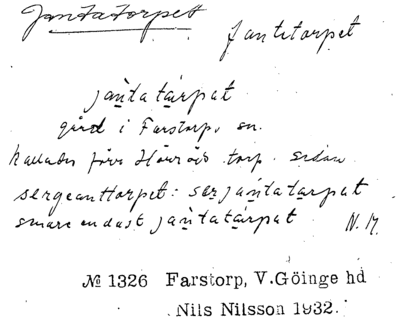 Jantatorpet
Jantetorpet
jantatarpat
gård i Farstorps sn.
kallades förr Hövröds torp. sedan
sergeanttorpet: serjantatarpat
snare endast jantatarpat N. N.
№ 1326 Farstorp, V.Göinge hd
Nils Nilsson 1932.